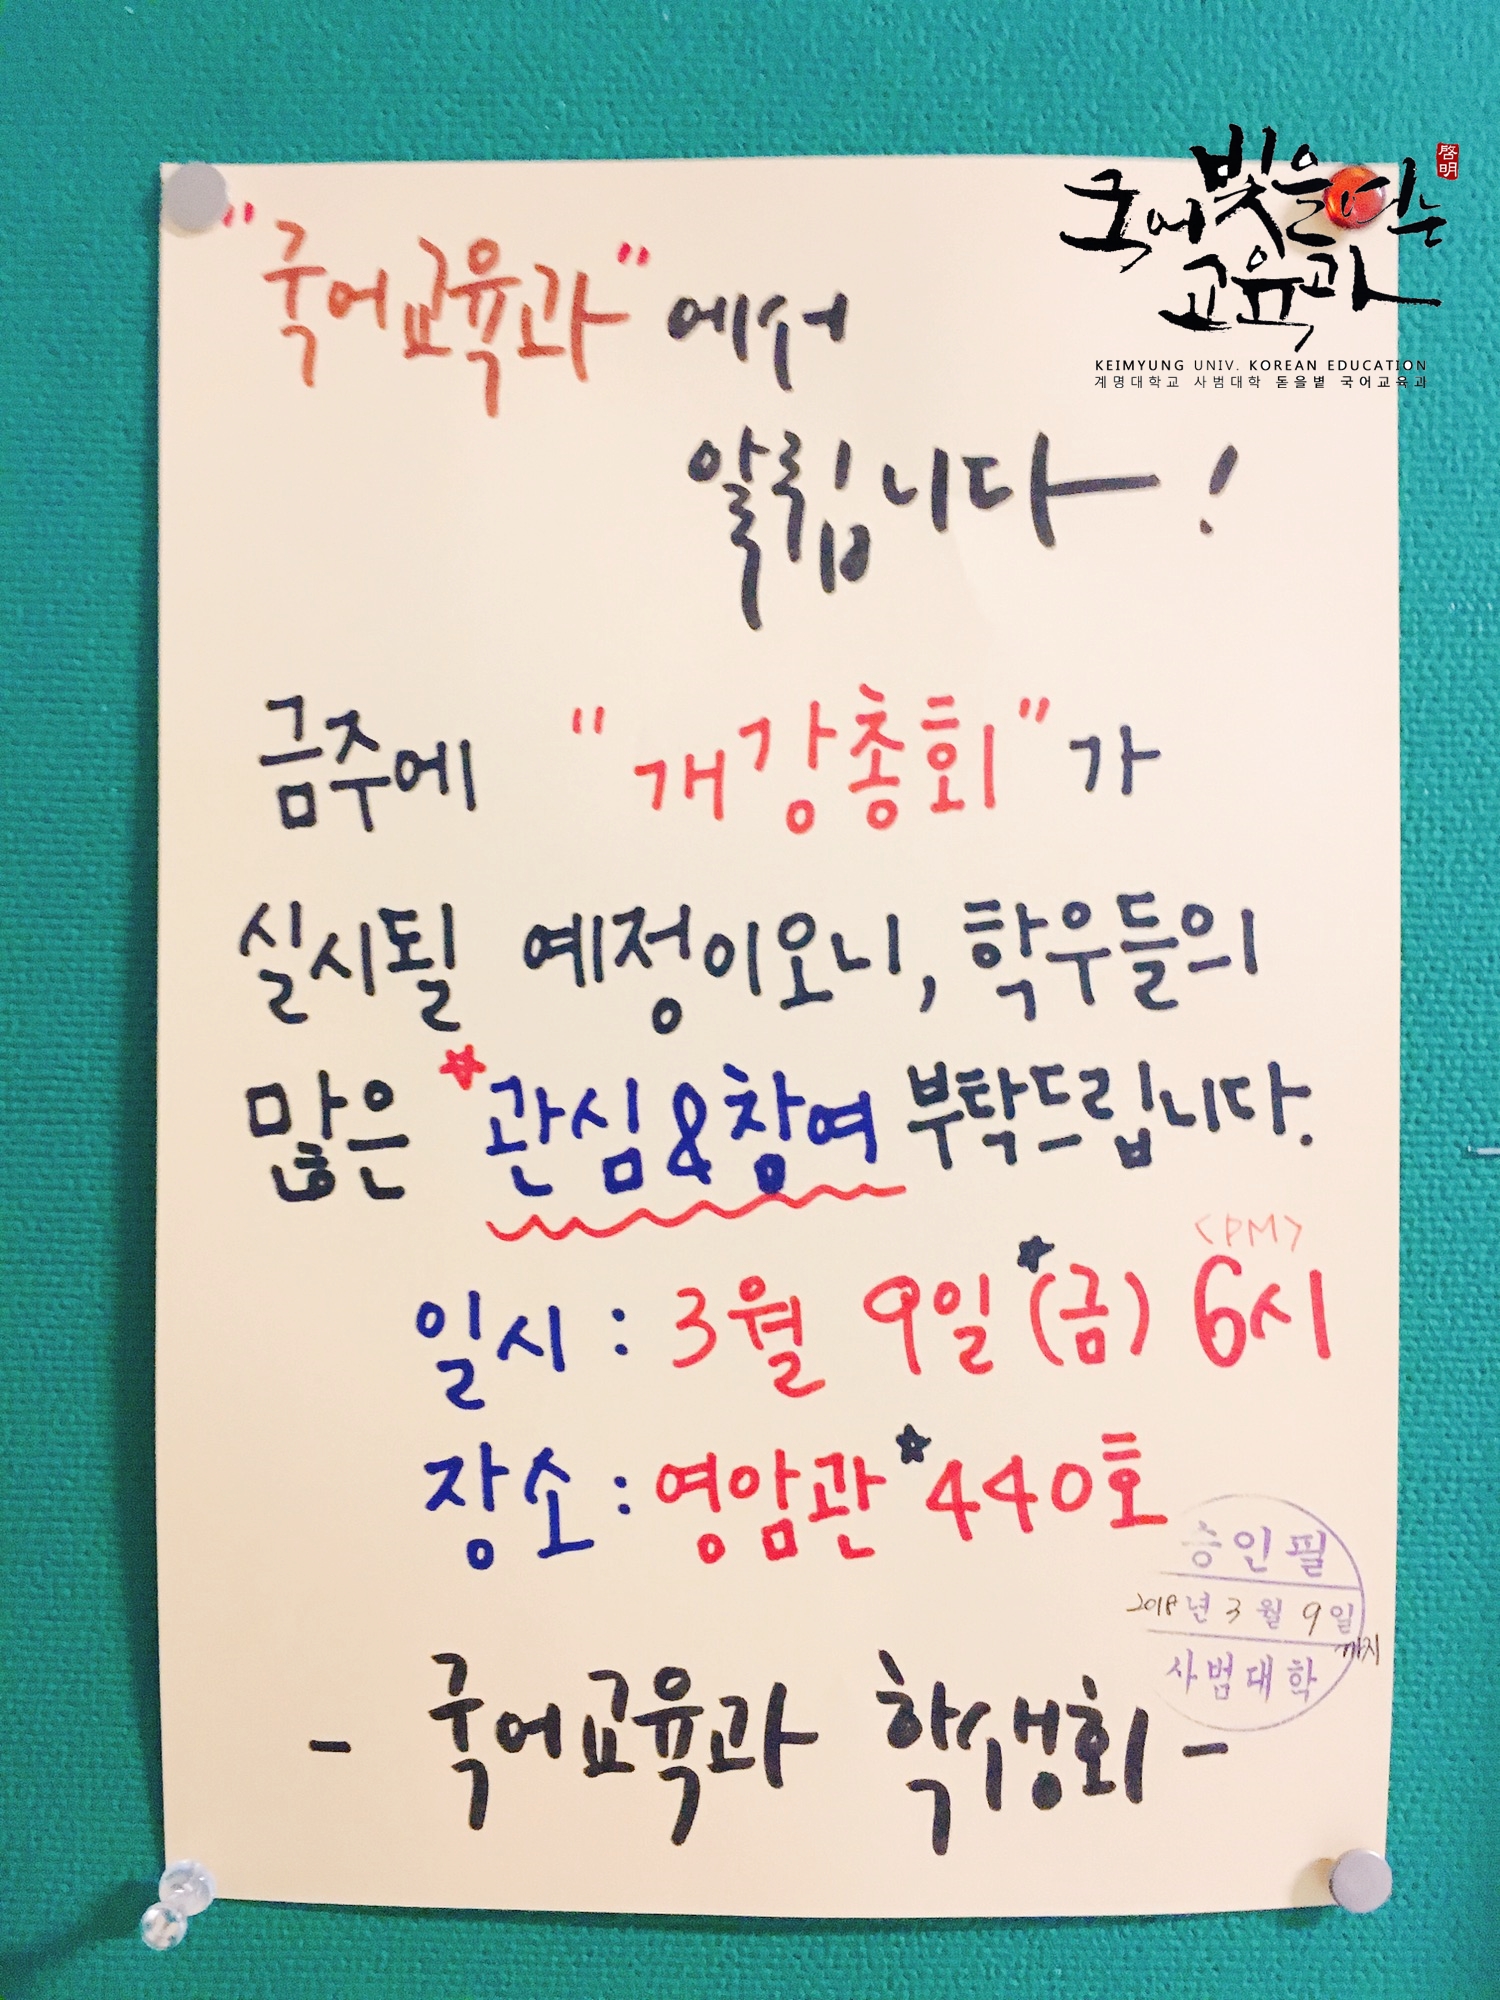 국어 빛을 여는
교육과
啓明
KEIMYUNG UNIV. KOREAN EDUCATION
계명대학교 사범대학 돋을볕 국어교육과
"국어교육과" 에서
알립니다!
금주에 "개강총회"가
실시될 예정이오니, 학우들의
많은 관심&참여 부탁드립니다.
<PM>
일시 : 3월 9일 (금) 6시
장소 : 영암관 440호
승인필
2018년 3월 9일
까지
사범대학
- 국어교육과 학생회 -